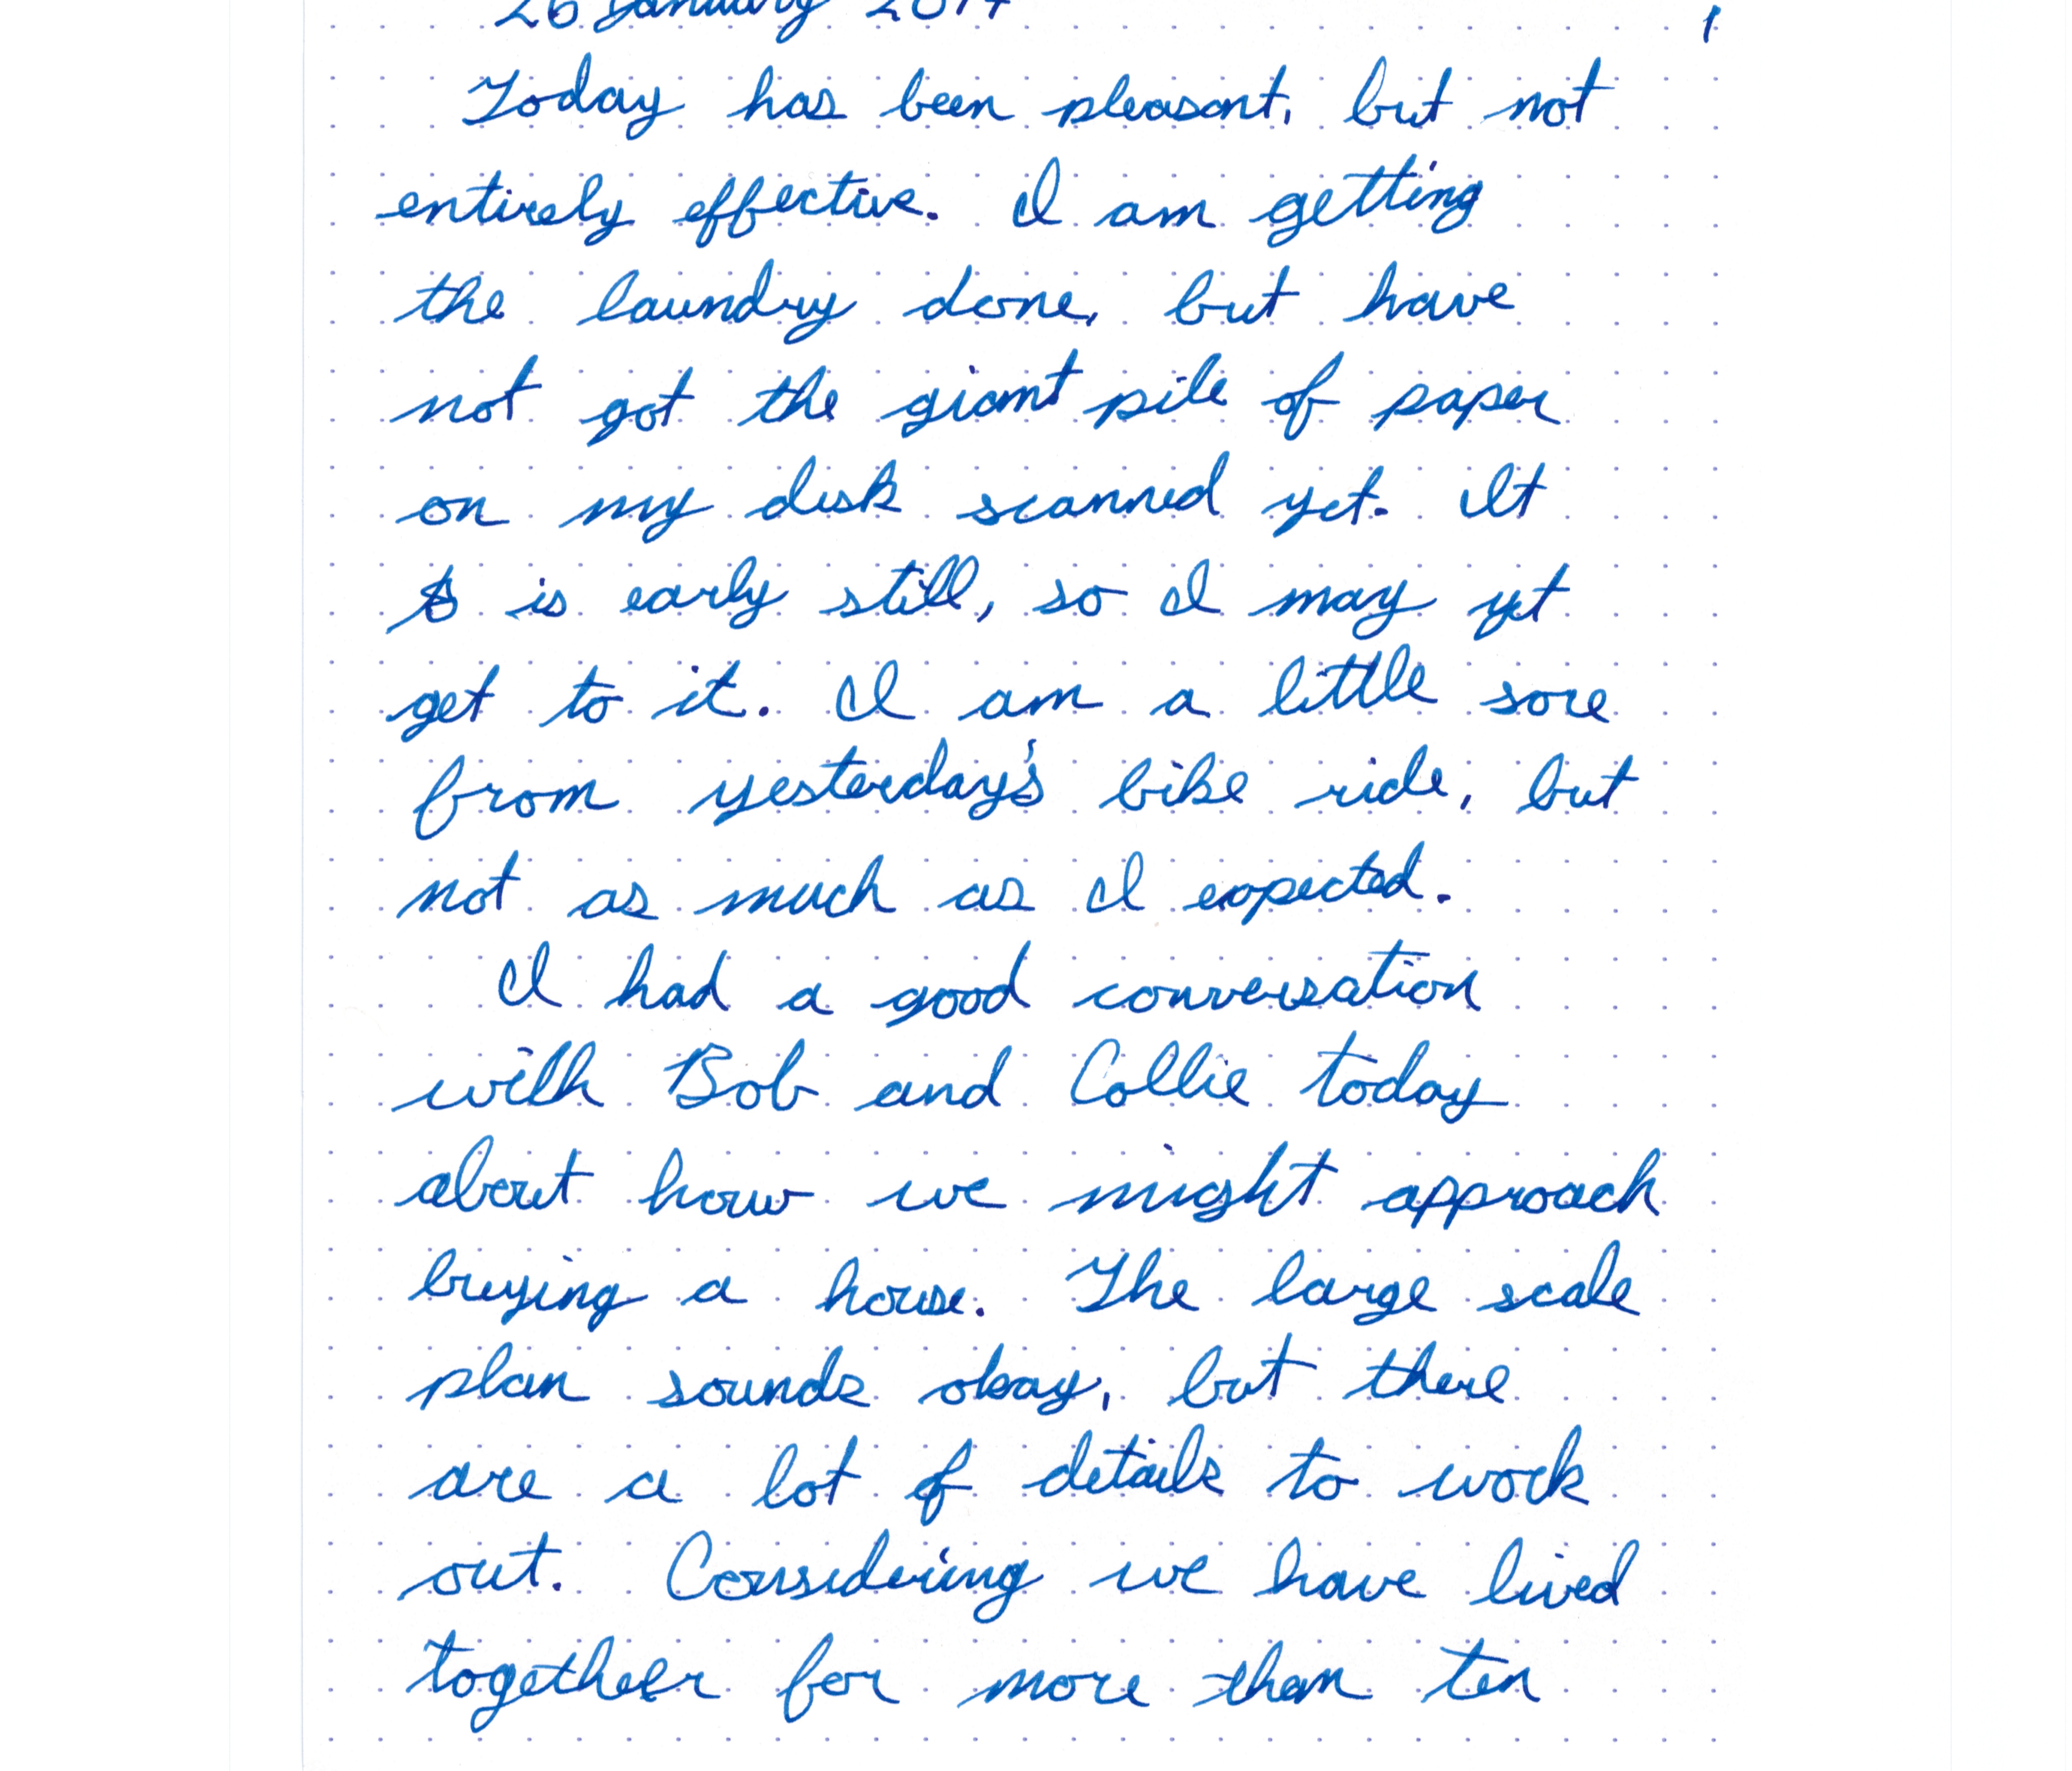 26 January 2014
1
Today has been pleasant, but not
entirely effective. I am getting
the laundry done, but have
not got the giant pile of paper
on my desk scanned yet. It
is early still, so I may yet
get to it. I am a little sore
from yesterday's bike ride, but
not as much as I expected.
I had a good conversation
with Bob and Collie today
about how we might approach
buying a house. The large scale
plan sounds okay, but there
are a lot of details to work
out. Considering we have lived
together for more than ten